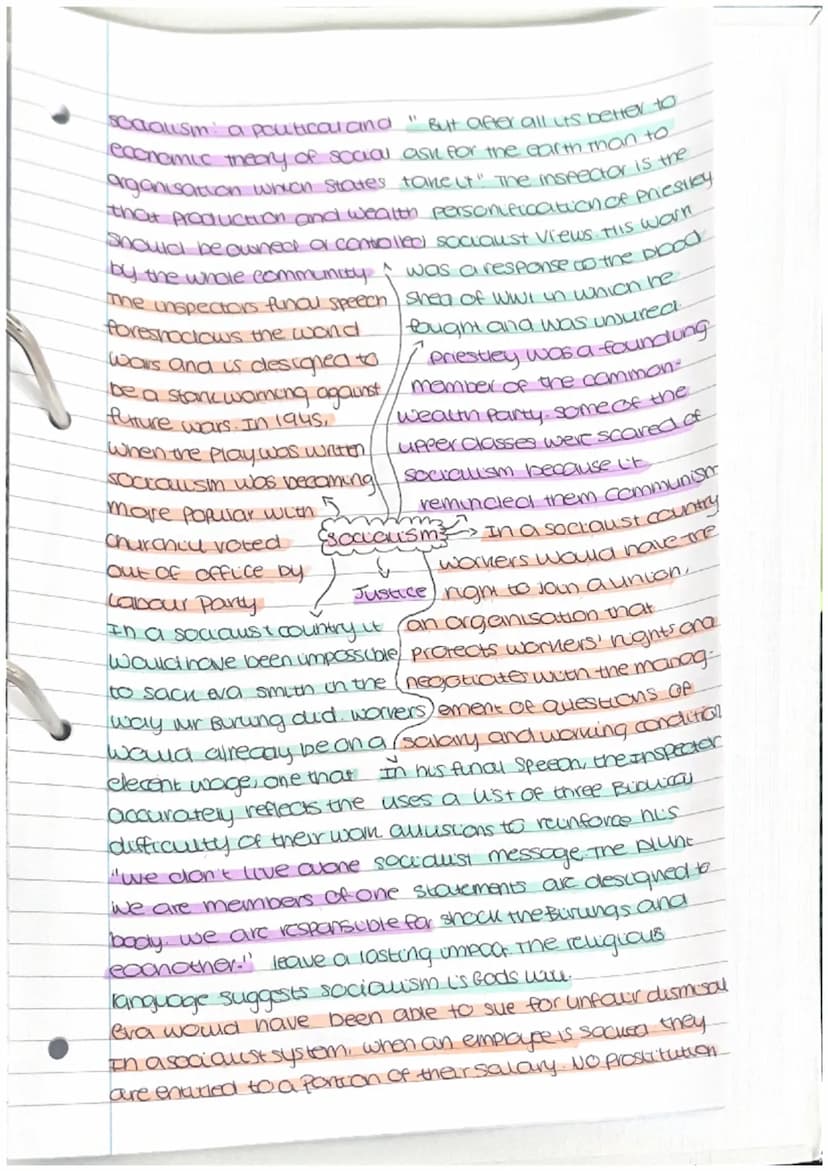 socialism: a political and
economic theory of social
organisation which states
that production and wealth
should be owned or controlled
by the whole community
"But after all its better to
ask for the earth than to
take it" The inspector is the
personification of Priestley
socialist views. His work
was a response to the blood
shed of WW1 in which he
fought and was injured.
The inspectors final speech
foreshadows the world
wars and is designed to
be a stark warning against
future wars. In 1945,
when the play was written
socialism was becoming
more popular with
churchill voted
out of office by
Labour Party
Priestley was a founding
member of the common-
wealth party. some of the
upper classes were scared of
socialism because it
reminded them communism
socialism
Justice
In a socialist country
workers would have the
right to join a union,
an organisation that
protects workers' rights and
negotiates with the manag-
ement of questions of
salary and working condition
In a socialist country it
would have been impossible
to sack eva smith in the
way Mr Birling did. workers
would already be on a
decent wage, one that
accurately reflects the
difficulty of their work
In his final speech, the inspector
uses a list of three Biblical
allusions to reinforce his
socialist message. The blunt
statements are designed to
shock the Birlings and
leave a lasting impact. The religious
language suggests socialism is Gods will.
"we don't live alone
we are members of one
body. we are responsible for
eachother."
Eva would have been able to sue for unfair dismissal
in a socialist system, when an employee is sacked they
are entitled to a portion of their salary. No prostitution